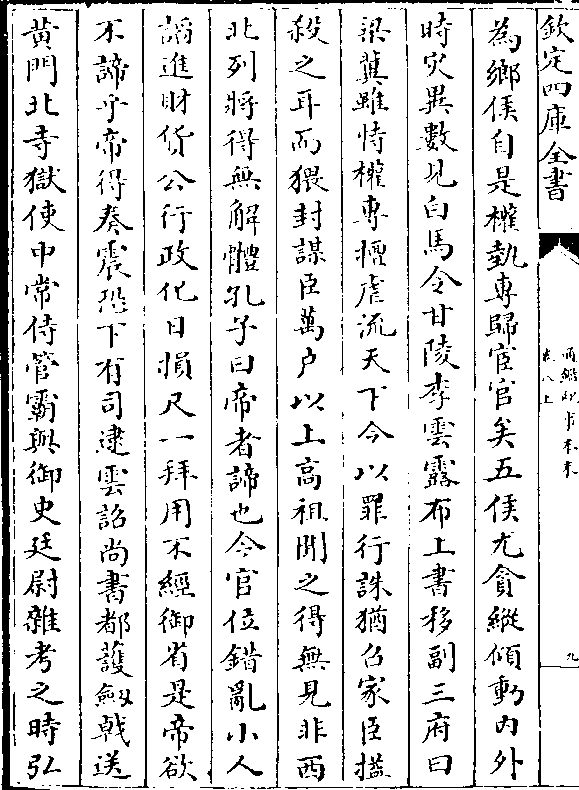 欽定四庫全書
通鑑紀事本末
卷八上
九
為鄉侯自是權埶專歸宦官矣五侯尤貪縱傾動内外
時灾異數見白馬令甘陵李雲露布上書移副三府曰
梁冀雖恃權專擅虐流天下今以罪行誅猶召家臣搤
殺之耳而猥封謀臣萬户以上高祖聞之得無見非西
北列將得無解體孔子曰帝者諦也今官位錯亂小人
謟進財貨公行政化日損尺一拜用不經御省是帝欲
不諦乎帝得奏震恐下有司逮雲詔尚書都䕶劔㦸送
黄門北寺獄使中常侍管霸與御史廷尉雜考之時弘